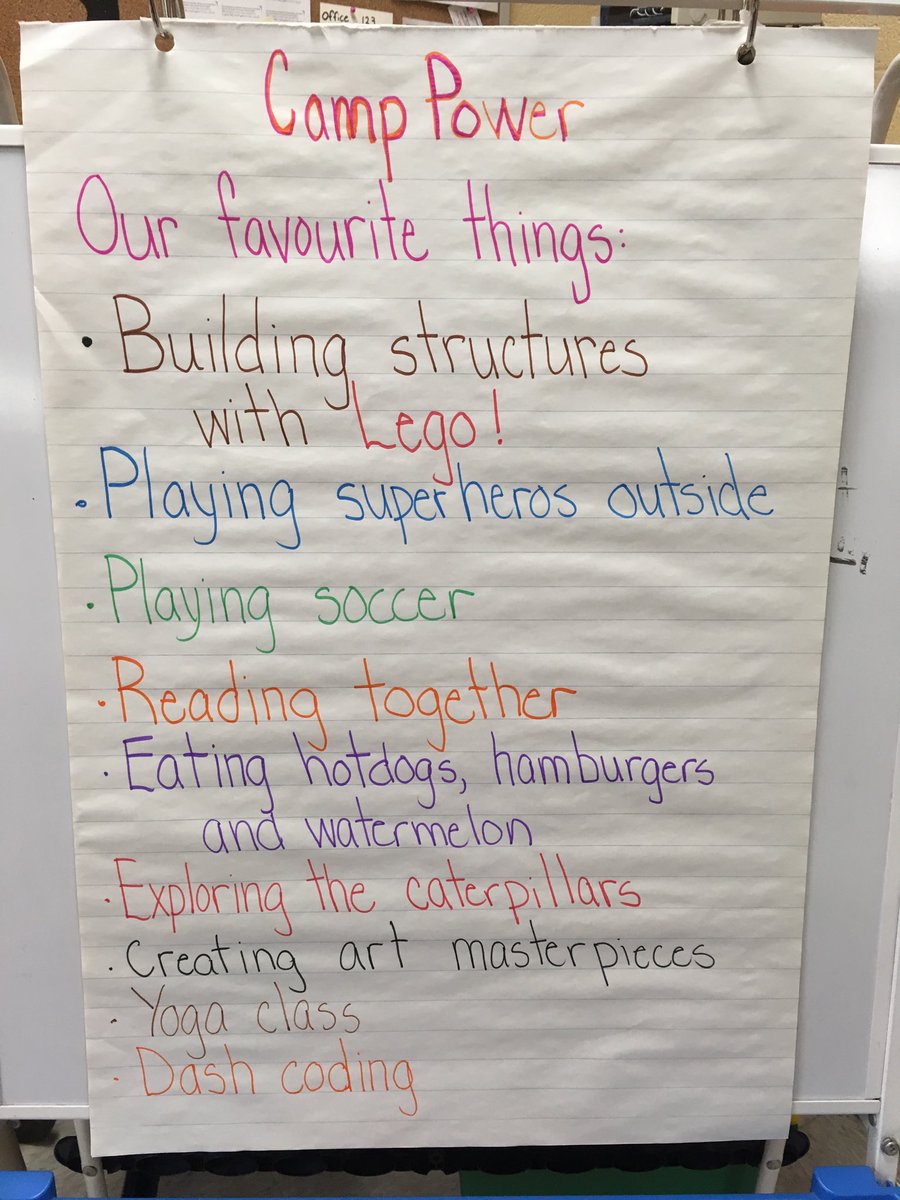 Office 123
Camp Power
Our favourite things:
• Building structures
with Lego!
• Playing superheros outside
• Playing soccer
• Reading together
• Eating hotdogs, hamburgers
and watermelon
• Exploring the caterpillars
• Creating art masterpieces
• Yoga class
• Dash coding